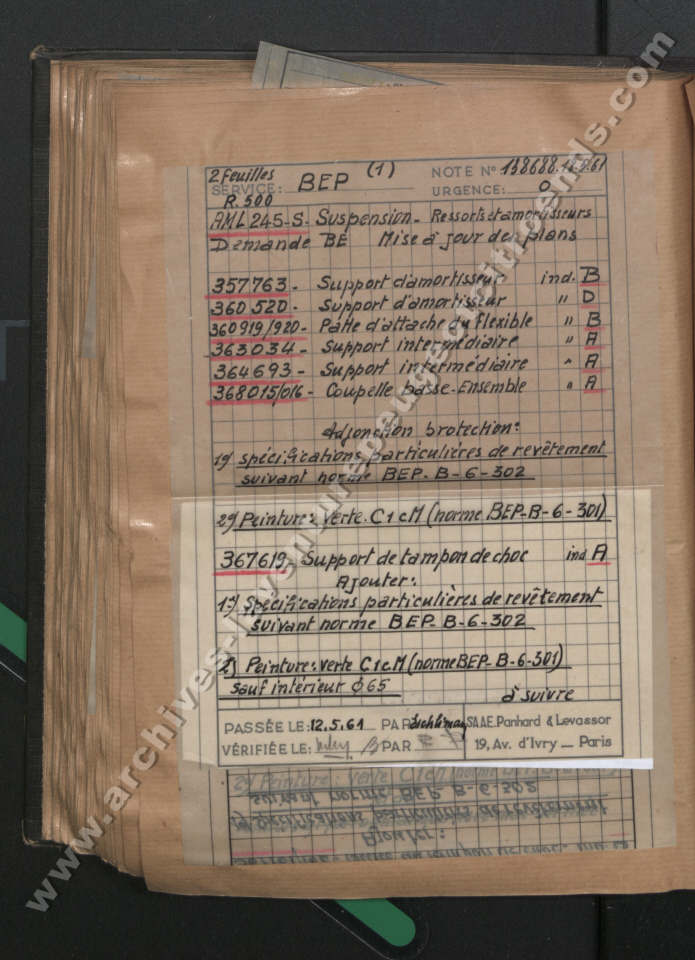 2 Feuilles
SERVICE: BEP (1) NOTE N° 138688.
URGENCE: 0
R. 500
AML 245-S. Suspension - Ressorts et amortisseurs
Demande BE Mise à jour des plans
357763 - Support d'amortisseur ind. B
360520 - Support d'amortisseur " D
360919/920 - Patte d'attache du flexible " B
363034 - Support intermédiaire " A
364693 - Support intermédiaire " A
368015/016 - Coupelle basse - Ensemble " A
Adjonction protection:
1°/ Spécifications particulières de revêtement
suivant norme BEP-B-6-302
2°/ Peinture: verte C1cM (norme BEP-B-6-301)
367619 - Support de tampon de choc ind A
Ajouter:
1°/ Spécifications particulières de revêtement
suivant norme BEP-B-6-302
2°/ Peinture: verte C1cM (norme BEP-B-6-301)
sauf intérieur ϕ 65
à suivre
PASSÉE LE: 12.5.61 PAR S.A.A.E. Panhard & Levassor
VÉRIFIÉE LE: PAR 19, Av. d'Ivry — Paris
2°/ Peinture: verte C1cM (norme
suivant norme BEP B-6-302
1°/ Spécifications particulières de revêtement
Ajouter:
www.archives-laventurepeugeotcitroends.com